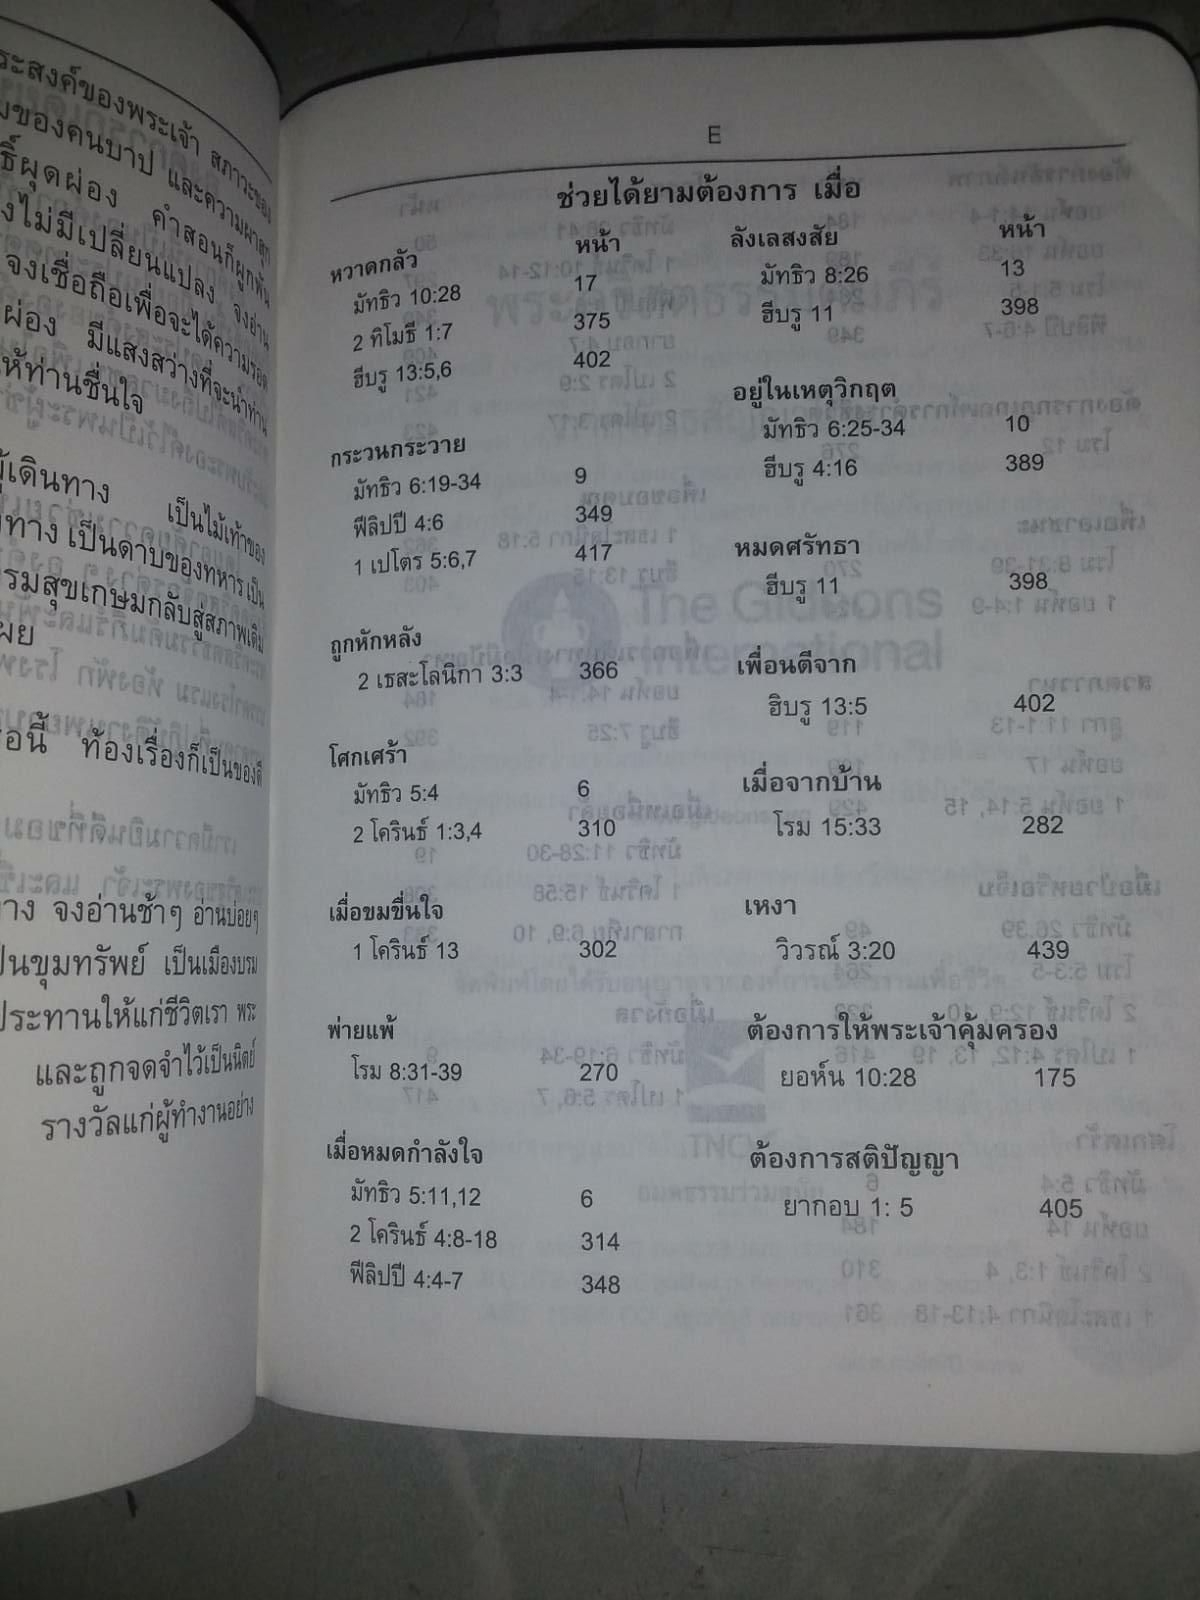 ระสงค์ของพระเจ้า สภาวะของ
ของคนบาป และความผาสุก
ธิ์ผุดผ่อง คำสอนก็ผูกพัน
ไม่มีเปลี่ยนแปลง จงอ่าน
จงเชื่อถือเพื่อจะได้ความรอด
ผ่อง มีแสงสว่างที่จะนำท่าน
ให้ท่านชื่นใจ
ผู้เดินทาง เป็นไม้เท้าของ
ทาง เป็นดาบของทหาร เป็น
รมสุขเกษมกลับสู่สภาพเดิม
ผย
นี้ ท้องเรื่องก็เป็นของดี
จงอ่านช้าๆ อ่านบ่อยๆ
ป็นขุมทรัพย์ เป็นเมืองบรม
ประทานให้แก่ชีวิตเรา พระ
และถูกจดจำไว้เป็นนิตย์
รางวัลแก่ผู้ทำงานอย่าง
E
ช่วยได้ยามต้องการ เมื่อ
หวาดกลัว หน้า
มัทธิว 10:28 17
2 ทิโมธี 1:7 375
ฮีบรู 13:5,6 402
กระวนกระวาย
มัทธิว 6:19-34 9
ฟีลิปปี 4:6 349
1 เปโตร 5:6,7 417
ถูกหักหลัง
2 เธสะโลนิกา 3:3 366
โศกเศร้า
มัทธิว 5:4 6
2 โครินธ์ 1:3,4 310
เมื่อขมขื่นใจ
1 โครินธ์ 13 302
พ่ายแพ้
โรม 8:31-39 270
เมื่อหมดกำลังใจ
มัทธิว 5:11,12 6
2 โครินธ์ 4:8-18 314
ฟีลิปปี 4:4-7 348
ลังเลสงสัย หน้า
มัทธิว 8:26 13
ฮีบรู 11 398
อยู่ในเหตุวิกฤต
มัทธิว 6:25-34 10
ฮีบรู 4:16 389
หมดศรัทธา
ฮีบรู 11 398
เพื่อนตีจาก
ฮิบรู 13:5 402
เมื่อจากบ้าน
โรม 15:33 282
เหงา
วิวรณ์ 3:20 439
ต้องการให้พระเจ้าคุ้มครอง
ยอห์น 10:28 175
ต้องการสติปัญญา
ยากอบ 1: 5 405